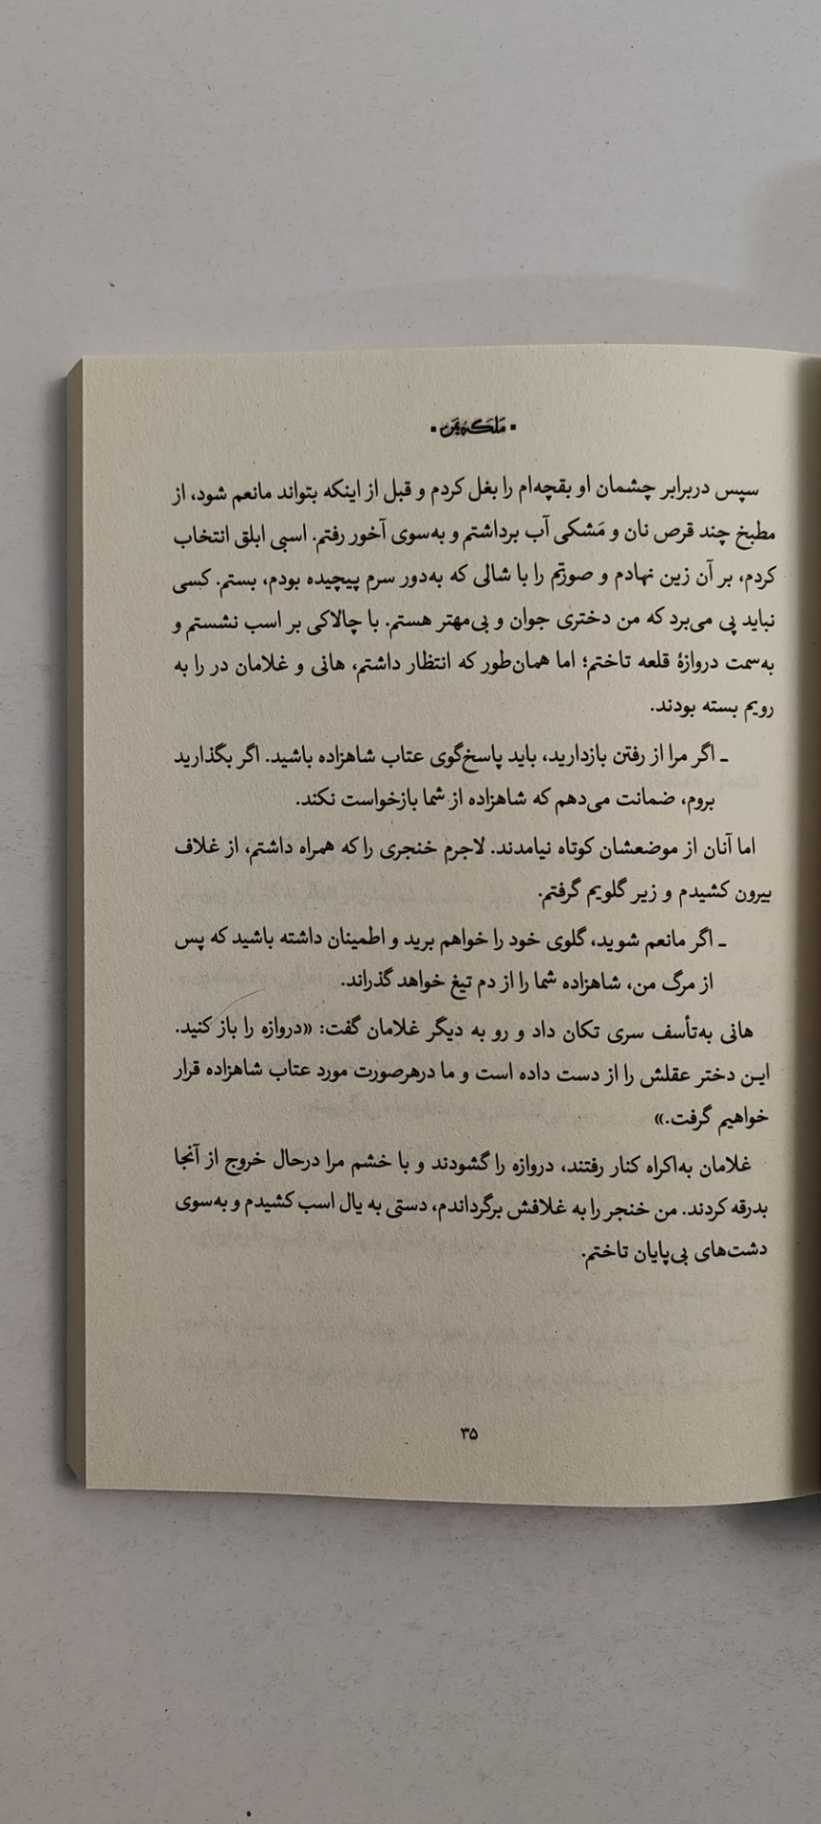 • ملکه من •
سپس دربرابر چشمان او بقچه‌ام را بغل کردم و قبل از اینکه بتواند مانعم شود، از
مطبخ چند قرص نان و مَشکی آب برداشتم و به‌سوی آخور رفتم. اسبی ابلق انتخاب
کردم، بر آن زین نهادم و صورتم را با شالی که به‌دور سرم پیچیده بودم، بستم. کسی
نباید پی می‌برد که من دختری جوان و بی‌مهتر هستم. با چالاکی بر اسب نشستم و
به‌سمت دروازهٔ قلعه تاختم؛ اما همان‌طور که انتظار داشتم، هانی و غلامان در را به
رویم بسته بودند.
ـ اگر مرا از رفتن بازدارید، باید پاسخ‌گوی عتاب شاهزاده باشید. اگر بگذارید
بروم، ضمانت می‌دهم که شاهزاده از شما بازخواست نکند.
اما آنان از موضعشان کوتاه نیامدند. لاجرم خنجری را که همراه داشتم، از غلاف
بیرون کشیدم و زیر گلویم گرفتم.
ـ اگر مانعم شوید، گلوی خود را خواهم برید و اطمینان داشته باشید که پس
از مرگ من، شاهزاده شما را از دم تیغ خواهد گذراند.
هانی به‌تأسف سری تکان داد و رو به دیگر غلامان گفت: «دروازه را باز کنید.
این دختر عقلش را از دست داده است و ما درهرصورت مورد عتاب شاهزاده قرار
خواهیم گرفت.»
غلامان به‌اکراه کنار رفتند، دروازه را گشودند و با خشم مرا درحال خروج از آنجا
بدرقه کردند. من خنجر را به غلافش برگرداندم، دستی به یال اسب کشیدم و به‌سوی
دشت‌های بی‌پایان تاختم.
۳۵